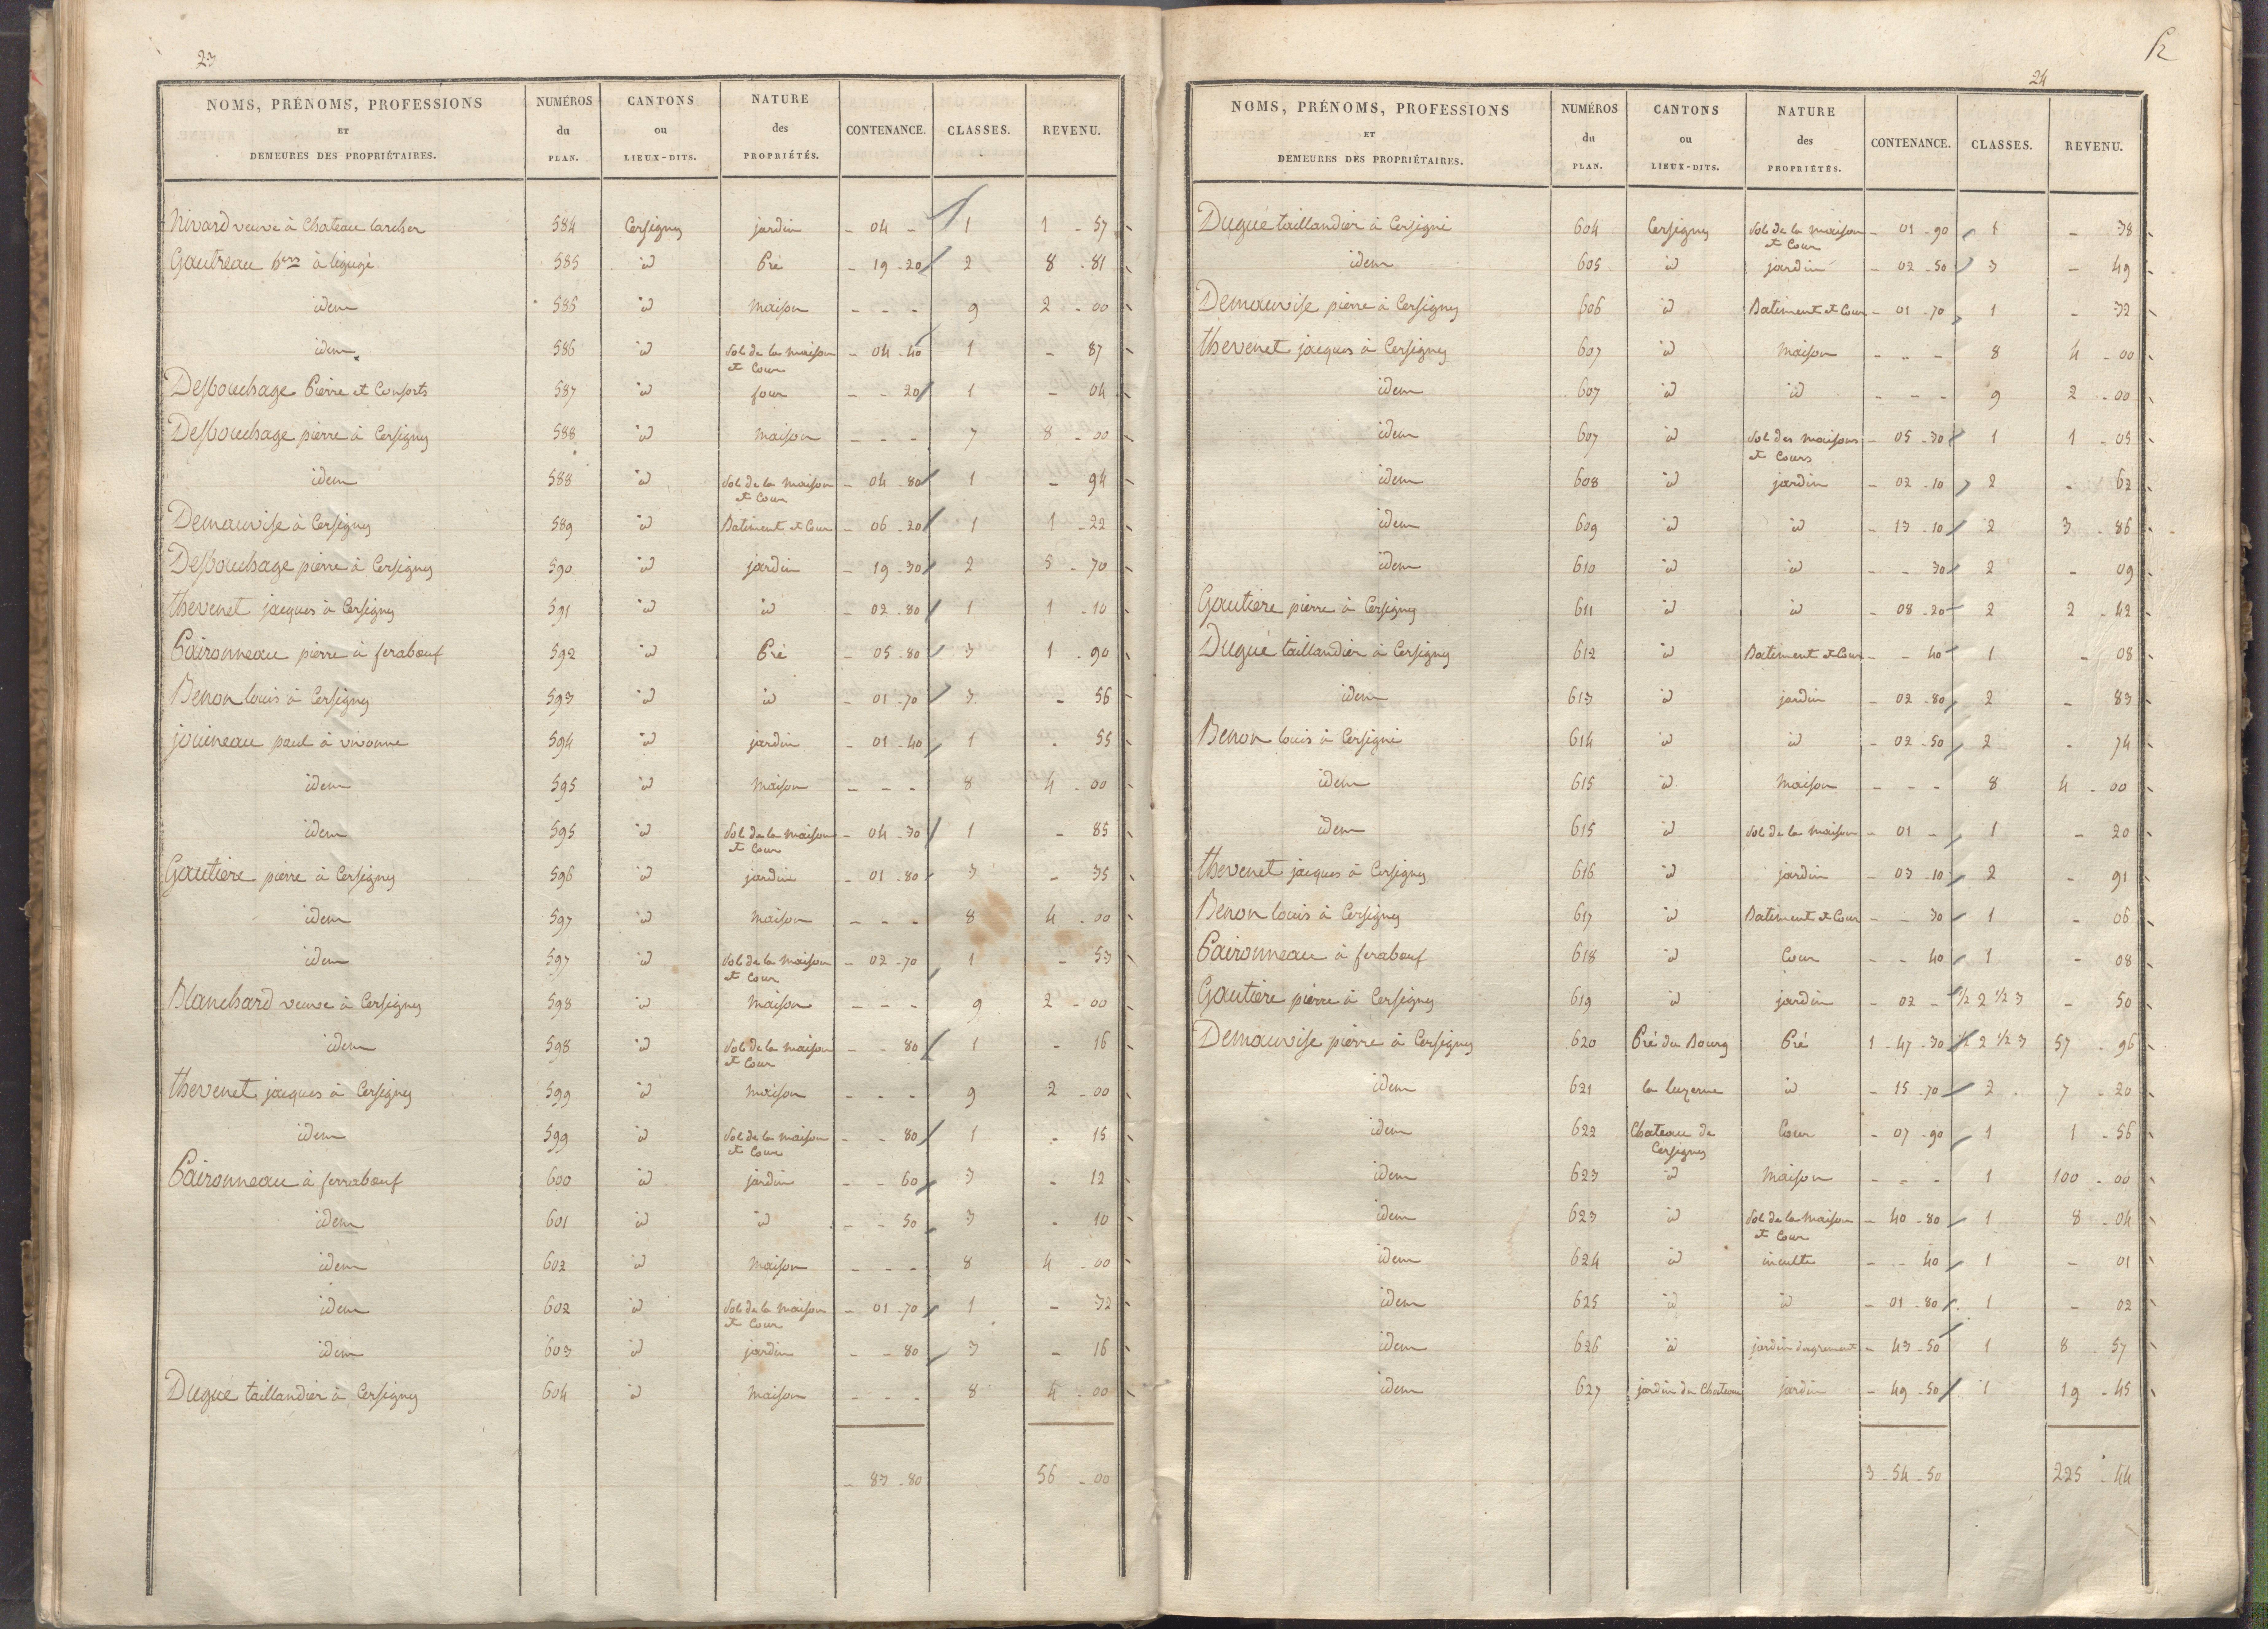 23
NOMS, PRÉNOMS, PROFESSIONS ET DEMEURES DES PROPRIÉTAIRES. NUMÉROS du PLAN. CANTONS ou LIEUX-DITS. NATURE des PROPRIÉTÉS. CONTENANCE. CLASSES. REVENU.
Nivard veuve à Chateau larcher 584 Cersigny jardin - 04 - 1 1 - 57
Gautreau à ligugé 585 id Pré - 19 - 20 2 8 - 81
idem 586 id Maison - - - 9 2 - 00
idem 586 id Sol de la maison et Cour - 04 - 40 1 - 87
Desbouchage Pierre et Consorts 587 id four - - 20 1 - 04
Desbouchage pierre à Cersigny 588 id Maison - - - 7 8 - 00
idem 588 id Sol de la maison et Cour - 04 - 80 1 - 94
Demauvise à Cersigny 589 id Batiment et Cour - 06 - 20 1 1 - 22
Desbouchage pierre à Cersigny 590 id jardin - 19 - 30 2 5 - 70
thevenet jacques à Cersigny 591 id id - 02 - 80 1 1 - 10
Paironneau pierre à ferabœuf 592 id Pré - 05 - 80 3 1 - 90
Benon louis à Cersigny 593 id id - 01 - 70 3 - 56
jouineau paul à vivonne 594 id jardin - 01 - 40 1 - 55
idem 595 id Maison - - - 8 4 - 00
idem 595 id Sol de la maison et Cour - 04 - 30 1 - 85
Gautiere pierre à Cersigny 596 id jardin - 01 - 80 3 - 35
idem 597 id Maison - - - 8 4 - 00
idem 597 id Sol de la maison et Cour - 02 - 70 1 - 53
Blanchard veuve à Cersigny 598 id Maison - - - 9 2 - 00
idem 598 id Sol de la maison et Cour - - 80 1 - 16
thevenet jacques à Cersigny 599 id Maison - - - 9 2 - 00
idem 599 id Sol de la maison et Cour - - 80 1 - 15
Paironneau à ferrabœuf 600 id jardin - - 60 3 - 12
idem 601 id id - - 50 3 - 10
idem 602 id Maison - - - 8 4 - 00
idem 602 id Sol de la maison et Cour - 01 - 70 1 - 32
idem 603 id jardin - - 80 3 - 16
Dugué taillandier à Cersigny 604 id Maison - - - 8 4 - 00
- 83 - 80 56 - 00
24
NOMS, PRÉNOMS, PROFESSIONS ET DEMEURES DES PROPRIÉTAIRES. NUMÉROS du PLAN. CANTONS ou LIEUX-DITS. NATURE des PROPRIÉTÉS. CONTENANCE. CLASSES. REVENU.
Dugué taillandier à Cersigné 604 Cersigny Sol de la maison et Cour - 01 - 90 1 - 38
idem 605 id jardin - 02 - 50 3 - 49
Demauvise pierre à Cersigny 606 id Batiment et Cour - 01 - 70 1 - 32
thevenet jacques à Cersigny 607 id Maison - - - 8 4 - 00
idem 607 id id - - - 9 2 - 00
idem 607 id Sol des maisons et Cours - 05 - 30 1 1 - 05
idem 608 id jardin - 02 - 10 2 - 62
idem 609 id id - 13 - 10 2 3 - 86
idem 610 id id - - 30 2 - 09
Gautiere pierre à Cersigny 611 id id - 08 - 20 2 2 - 42
Dugué taillandier à Cersigny 612 id Batiment et Cour - - 40 1 - 08
idem 613 id jardin - 02 - 80 2 - 83
Benon louis à Cersigné 614 id id - 02 - 50 2 - 74
idem 615 id Maison - - - 8 4 - 00
idem 615 id Sol de la maison - 01 - 1 - 20
thevenet jacques à Cersigny 616 id jardin - 03 - 10 2 - 91
Benon louis à Cersigny 617 id Batiment et Cour - - 30 1 - 06
Paironneau à ferabœuf 618 id Cour - - 40 1 - 08
Gautiere pierre à Cersigny 619 id jardin - 02 - ½ 2 ½ 3 - 50
Demauvise pierre à Cersigny 620 Pré du Bourg Pré 1 - 47 - 30 ½ 2 ½ 3 57 - 96
idem 621 la luzerne id - 15 - 70 2 7 - 20
idem 622 Chateau de Cersigny Cour - 07 - 90 1 1 - 56
idem 623 id Maison - - - 1 100 - 00
idem 623 id Sol de la maison et Cour - 40 - 80 1 8 - 04
idem 624 id inculte - - 40 1 - 01
idem 625 id id - 01 - 80 1 - 02
idem 626 id jardin dagrement - 43 - 50 1 8 - 57
idem 627 jardin du Chateau jardin - 49 - 50 1 19 - 45
3 - 54 - 50 225 - 44